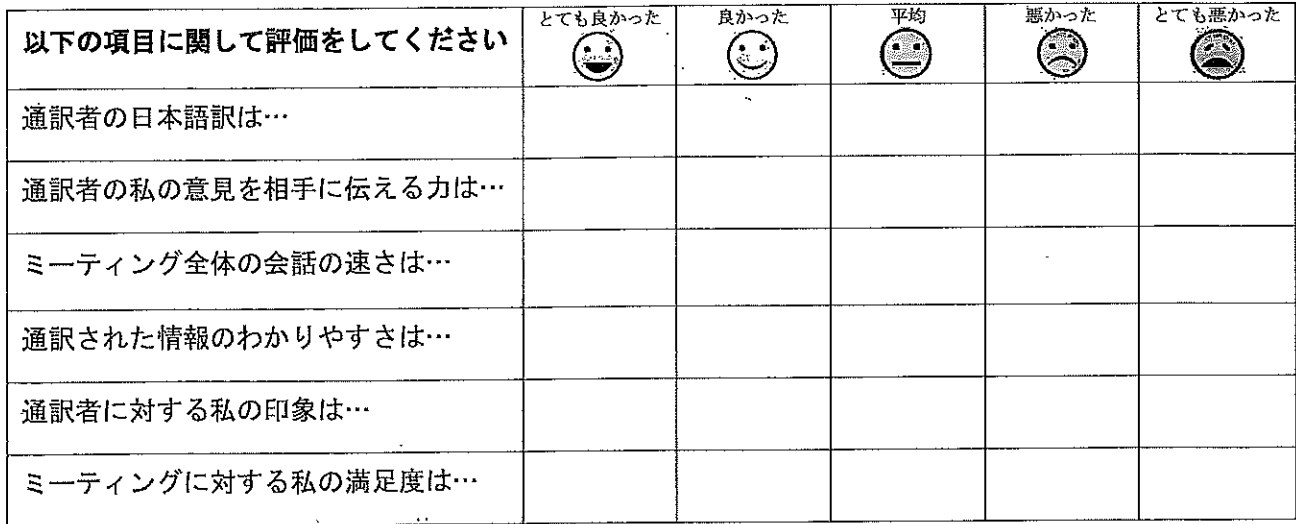 以下の項目に関して評価をしてください
とても良かった
良かった
平均
悪かった
とても悪かった
通訳者の日本語訳は…
通訳者の私の意見を相手に伝える力は…
ミーティング全体の会話の速さは…
通訳された情報のわかりやすさは…
通訳者に対する私の印象は…
ミーティングに対する私の満足度は…